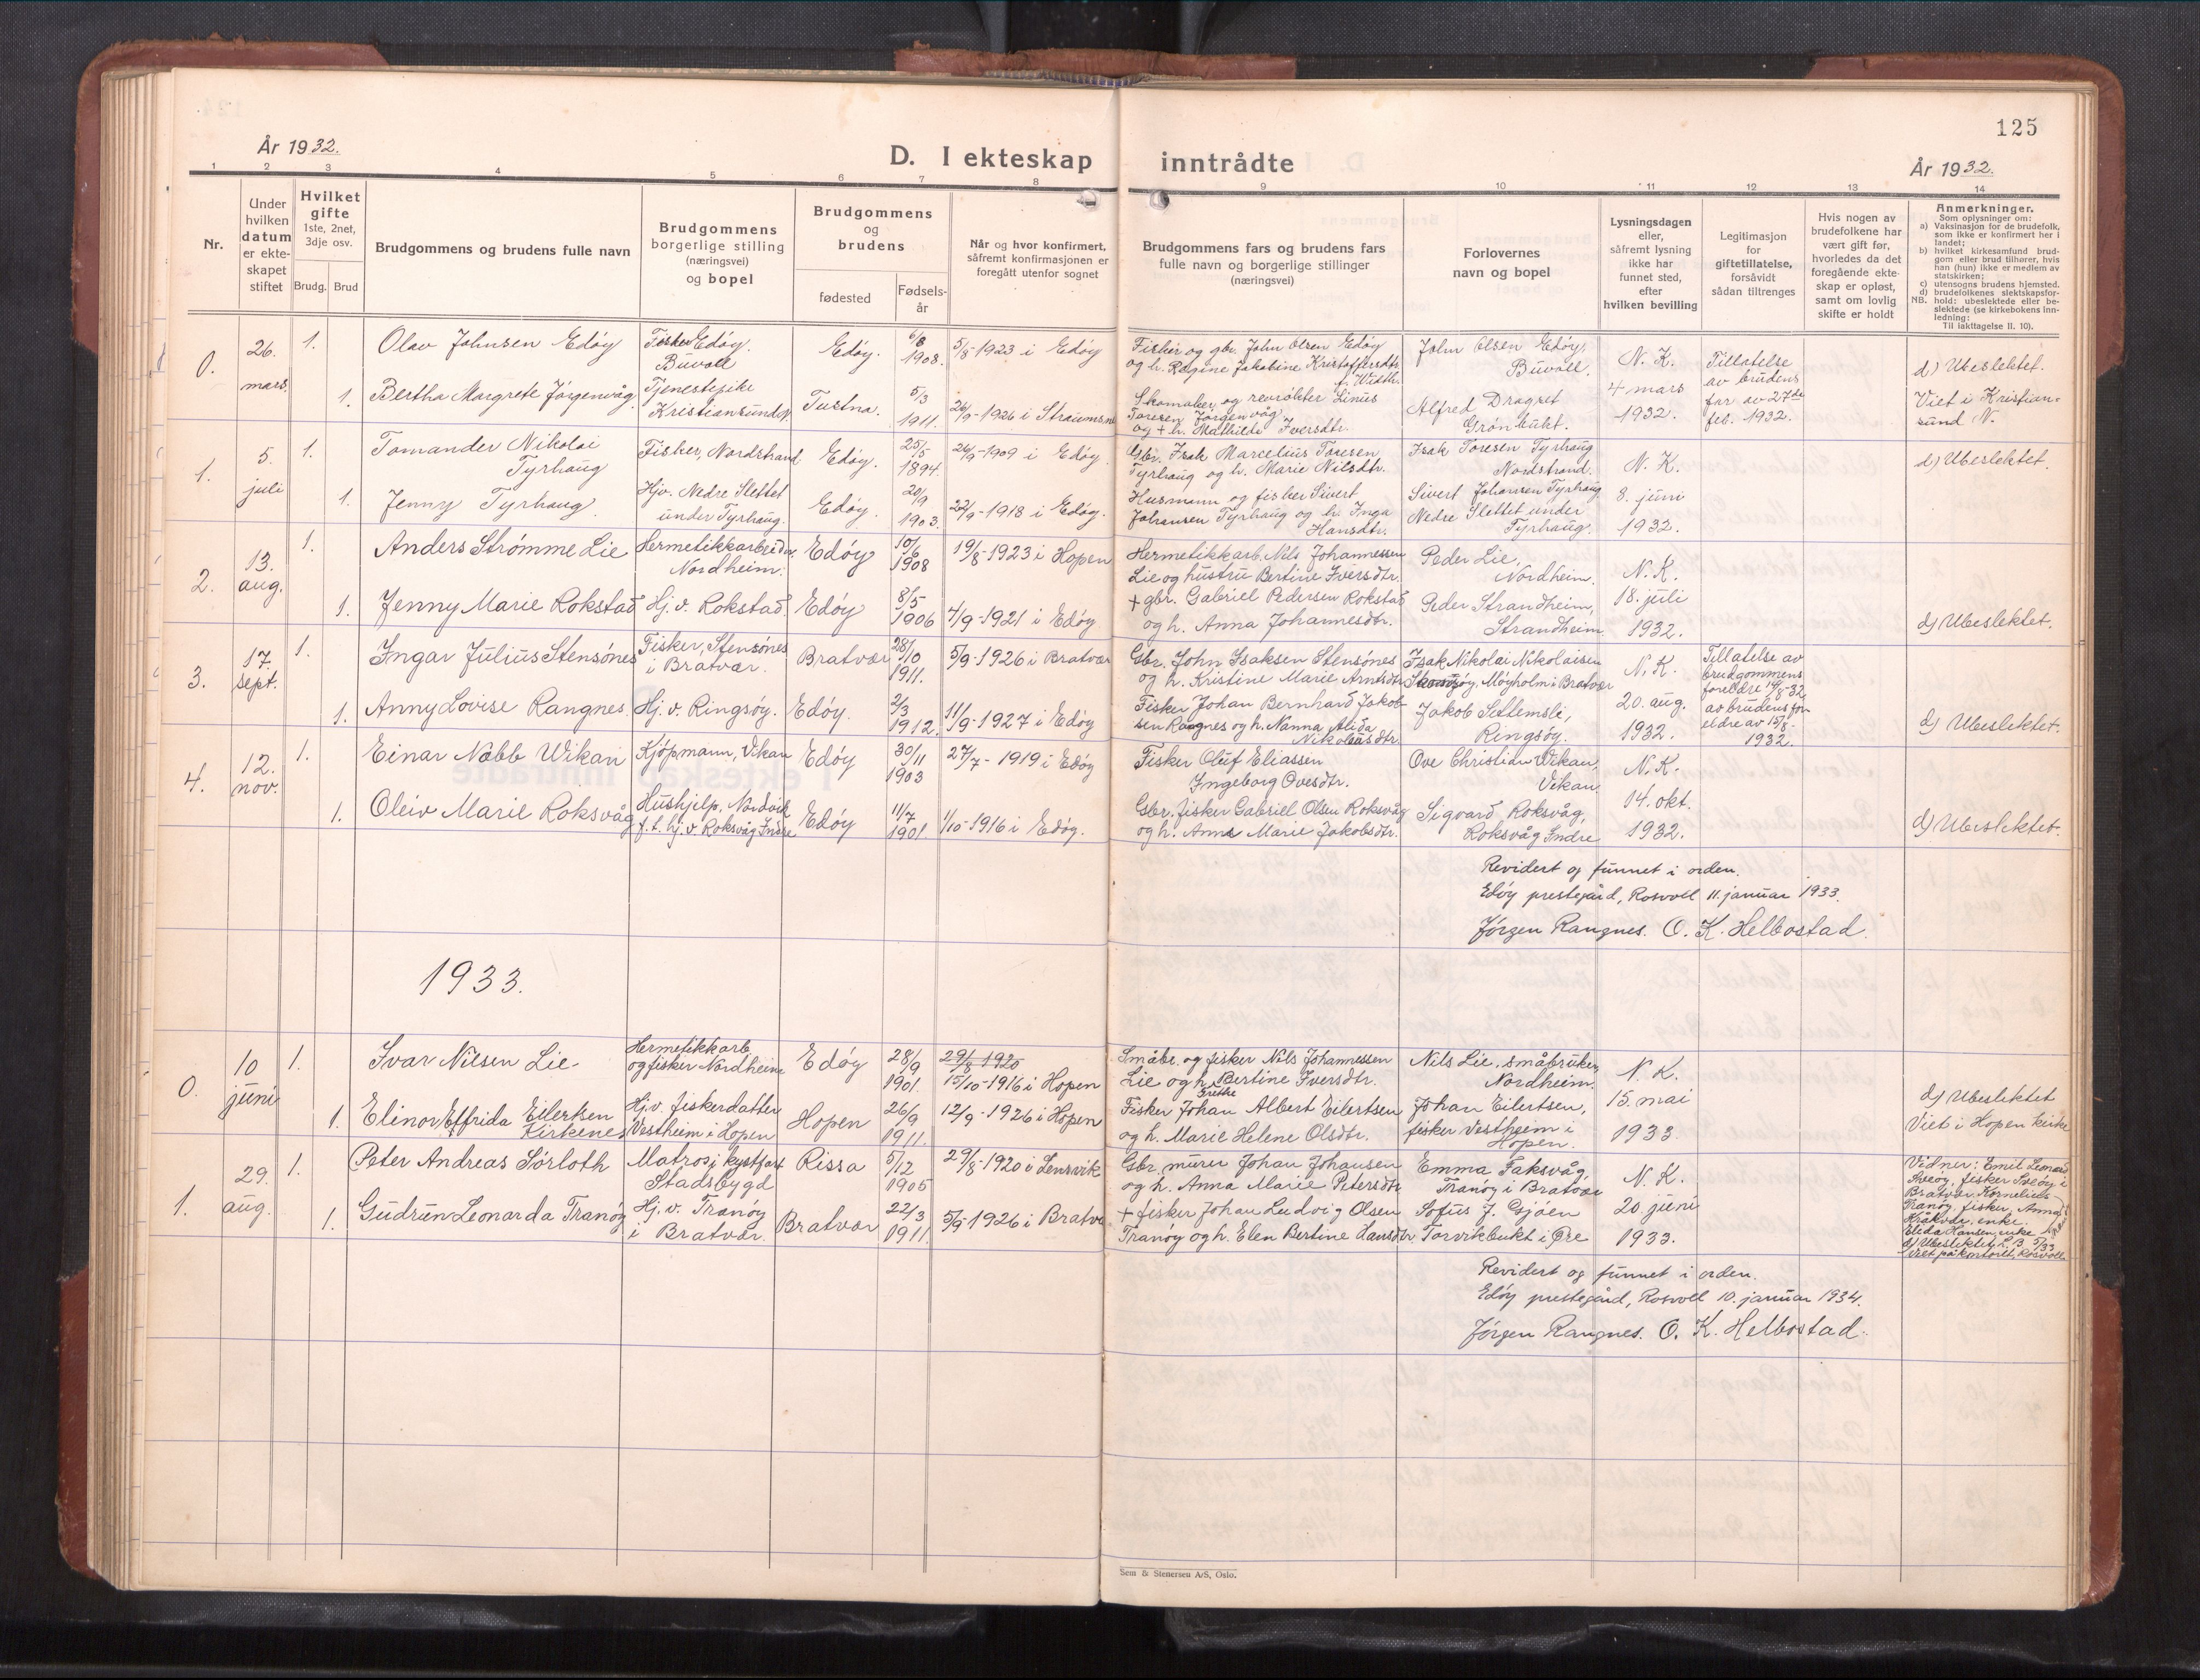 125
År 1932.
D. I ekteskap inntrådte
År 1932.
1 2 3 4 5 6 7 8 9 10 11 12 13 14
Nr.
Under hvilken datum er ekteskapet stiftet
Hvilket gifte
1ste, 2net, 3dje osv.
Brudg. Brud
Brudgommens og brudens fulle navn
Brudgommens borgerlige stilling (næringsvei) og bopel
Brudgommens og brudens
fødested
Fødselsår
Når og hvor konfirmert, såfremt konfirmasjonen er foregått utenfor sognet
Brudgommens fars og brudens fars fulle navn og borgerlige stillinger (næringsvei)
Forlovernes navn og bopel
Lysningsdagen eller, såfremt lysning ikke har funnet sted, efter hvilken bevilling
Legitimasjon for giftetillatelse, forsåvidt sådan tiltrenges
Hvis nogen av brudefolkene har vært gift før, hvorledes da det foregående ekteskap er opløst, samt om lovlig skifte er holdt
Anmerkninger.
Som oplysninger om:
a) Vaksinasjon for de brudefolk, som ikke er konfirmert her i landet;
b) hvilket kirkesamfund brudgom eller brud tilhører, hvis han (hun) ikke er medlem av statskirken;
c) utensogns brudens hjemsted.
d) brudefolkenes slektskapsforhold: ubeslektede eller beslektede (se kirkebokens innledning:
NB. Til iakttagelse II. 10).
0. 26. mars
1. Olav Johnsen Edöy
Fisker Edöy. Buvoll
Edöy. 6/8 1908.
5/8-1923 i Edöy
Fisker og gbr. John Olsen Edöy
og h. Regine Jakobine Kristoffersdtr. f. Width.
John Olsen Edöy, Buvoll.
N. K. 4 mars 1932.
Tillatelse av brudens far av 27de feb. 1932.
d) Ubeslektet.
Viet i Kristiansund N.
1. Bertha Margrete Jörgenvåg
Tjenestepike Kristiansund N.
Tustna. 5/3 1911.
26/9-1926 i Straumsnes
Skomaker og reviökter Linus
Toresen Jörgenvåg
og + h. Mathilde Iversdtr.
Alfred Draget Grönbukt.
1. 5. juli
1. Tomander Nikolai Tyrhaug
Fisker, Nordstrand
Edöy. 25/5 1894.
26/9-1909 i Edöy
Gbr. Isak Marcelius Toresen
Tyrhaug og h. Marie Nilsdtr.
Isak Toresen Tyrhaug Nordstrand.
N. K. 8. juni 1932.
d) Ubeslektet.
1. Jenny Tyrhaug
Hjv. Nedre Slettet under Tyrhaug.
Edöy. 20/9 1903.
22/9-1918 i Edöy.
Husmann og fisker Sivert
Johansen Tyrhaug og h. Inga Hansdtr.
Sivert Johansen Tyrhaug
Nedre Slettet under Tyrhaug.
2. 13. aug.
1. Anders Strömme Lie
Hermetikkarbeider, Nordheim.
Edöy 10/6 1908
19/8-1923 i Hopen
Hermetikkarb. Nils Johannessen
Lie og hustru Bertine Iversdtr.
Peder Lie, Nordheim.
N. K. 18. juli 1932.
1. Jenny Marie Rokstad
Hj. v. Rokstad.
Edöy 8/5 1906
4/9-1921 i Edöy
+ gbr. Gabriel Pedersen Rokstad
og h. Anna Johannesdtr.
Peder Strandheim, Strandheim
d) Ubeslektet.
3. 17. sept.
1. Ingar Julius Stensönes
Fisker, Stensönes i Bratvær.
Bratvær 28/10 1911.
5/9-1926 i Bratvær
Gbr. John Isaksen Stensönes
og h. Kristine Marie Arntsdtr.
Isak Nikolai Nikolaisen
Möyholm i Bratvær
N. K. 20. aug. 1932.
Tillatelse av brudgommens foreldre 14/8-32, av brudens foreldre av 15/8-1932.
1. Anny Lovise Rangnes
Hj. v. Ringsöy.
Edöy. 2/3 1912.
11/9-1927 i Edöy
Fisker Johan Bernhard Jakobsen
Rangnes og h. Nanna Alida Nikolaisdtr.
Jakob Settemsli, Ringsöy.
d) Ubeslektet.
4. 12. nov.
1. Einar Nabb Wikan
Kjöpmann, Vikan
Edöy 30/11 1903
27/7-1919 i Edöy
Fisker Oluf Eliassen
Ingeborg Ovesdtr.
Ove Christian Wikan, Vikan.
N. K. 14. okt. 1932.
1. Oleiv Marie Roksvåg
Hushjelp, Nordvik f. t. hj. v. Roksvåg Indre
Edöy 11/7 1901
1/10-1916 i Edöy.
Gbr. fisker Gabriel Olsen Roksvåg
og h. Anna Marie Jakobsdtr.
Sigvard Roksvåg, Roksvåg Indre
d) Ubeslektet.
Revidert og funnet i orden.
Edöy prestegård, Rosvoll 11. januar 1933.
Jörgen Rangnes. O. K. Helbostad.
1933.
0. 10 juni
1. Ivar Nilsen Lie
Hermetikkarb. og fisker Nordheim
Edöy 28/9 1901.
29/8 1920
15/10-1916 i Hopen
Småbr. og fisker Nils Johannessen
Lie og h. Bertine Iversdtr.
Nils Lie, småbruker, Nordheim.
N. K. 15. mai 1933.
d) Ubeslektet
Viet i Hopen kirke
1. Elinor Elfrida Eilertsen Kirkenes
Hj. v. fiskerdatter Vestheim i Hopen
Hopen 26/9 1911.
12/9-1926 i Hopen
Fisker Johan Grethe Albert Eilertsen
og h. Marie Helene Olsdtr.
Johan Eilertsen, fisker Vestheim i Hopen.
1. 29. aug.
1. Peter Andreas Sörloth
Matros i kystfart Stadsbygd
Rissa 5/12 1905
29/8-1920 i Lensvik
Gbr. murer Johan Johansen
og h. Anna Marie Petersdtr.
Emma Faksvåg Tranöy i Bratvær
N. K. 20. juni 1933.
Vidner: Emil Leonard
Sveöy, fisker Sveöy i
Bratvær, Kornelius
Tranöy, fisker, Anna
Kråkvde, enke.
Elida Hansen, enke
d) Ubeslektet. L. B. 5/33
Viet på kontoret, Rosvoll
1. Gudrun Leonarda Tranöy
Hj. v. Tranöy i Bratvær.
Bratvær 22/3 1911.
5/9 1926 i Bratvær
+ fisker Johan Ludvig Olsen
Tranöy og h. Elen Bertine Hansdtr.
Sofus J. Gjöen Torvikbukt i Öre
Revidert og funnet i orden.
Edöy prestegård, Rosvoll 10. januar 1934.
Jörgen Rangnes. O. K. Helbostad.
Sem & Stenersen A/S, Oslo.